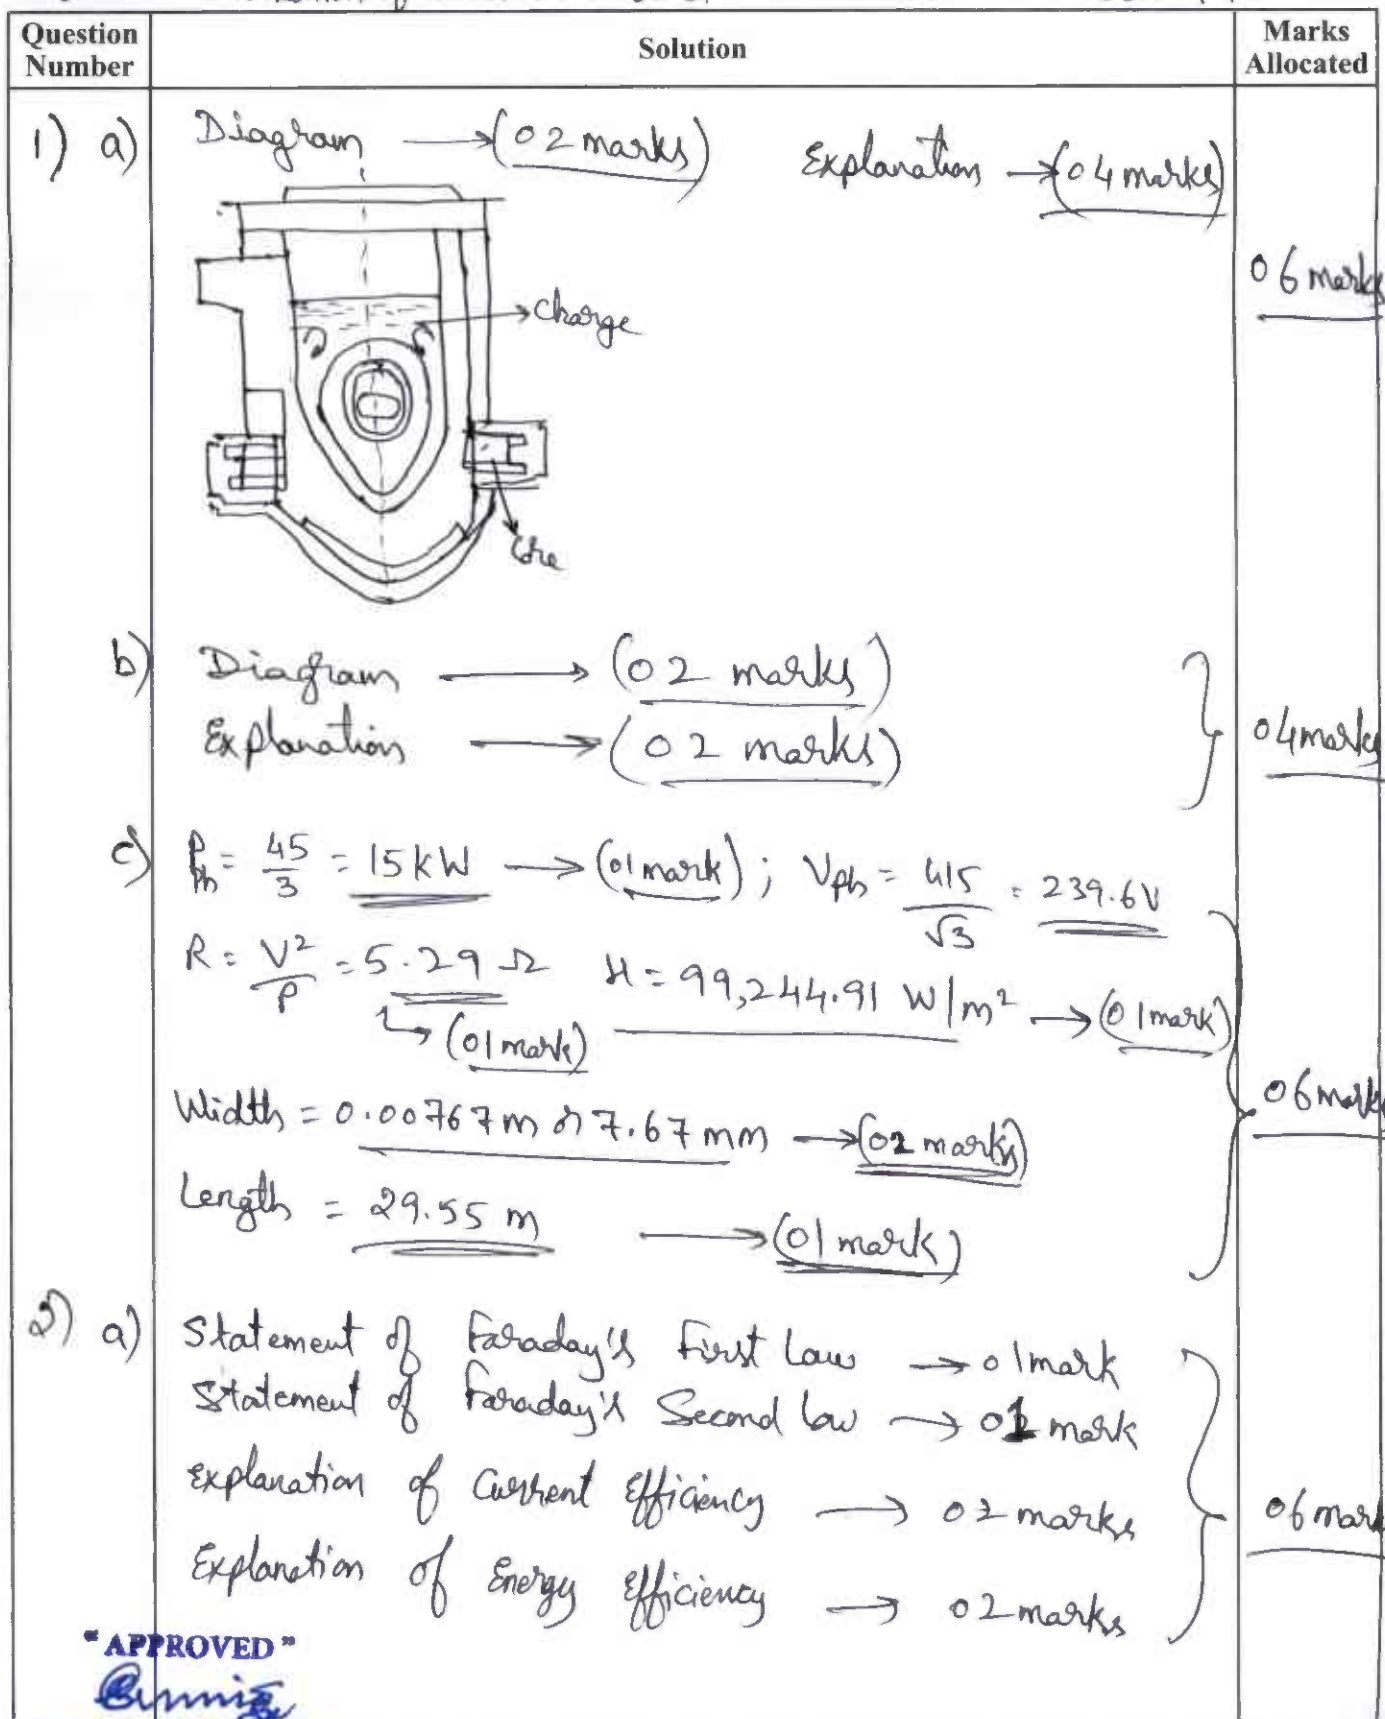 Question Number
Solution
Marks Allocated
1) a) Diagram → (02 marks) Explanation → (04 marks)
06 marks
Charge
Core
b) Diagram → (02 marks)
Explanation → (02 marks)
04 marks
c) Pph = 45/3 = 15 kW → (01 mark) ; Vph = 415/√3 = 239.6V
R = V²/P = 5.29 Ω H = 99,244.91 W/m² → (01 mark)
↳ (01 mark)
Width = 0.00767 m or 7.67 mm → (02 marks)
06 marks
Length = 29.55 m → (01 mark)
2) a) Statement of Faraday's First Law → 01 mark
Statement of Faraday's Second law → 01 mark
Explanation of Current Efficiency → 02 marks
06 mark
Explanation of Energy Efficiency → 02 marks
"APPROVED"